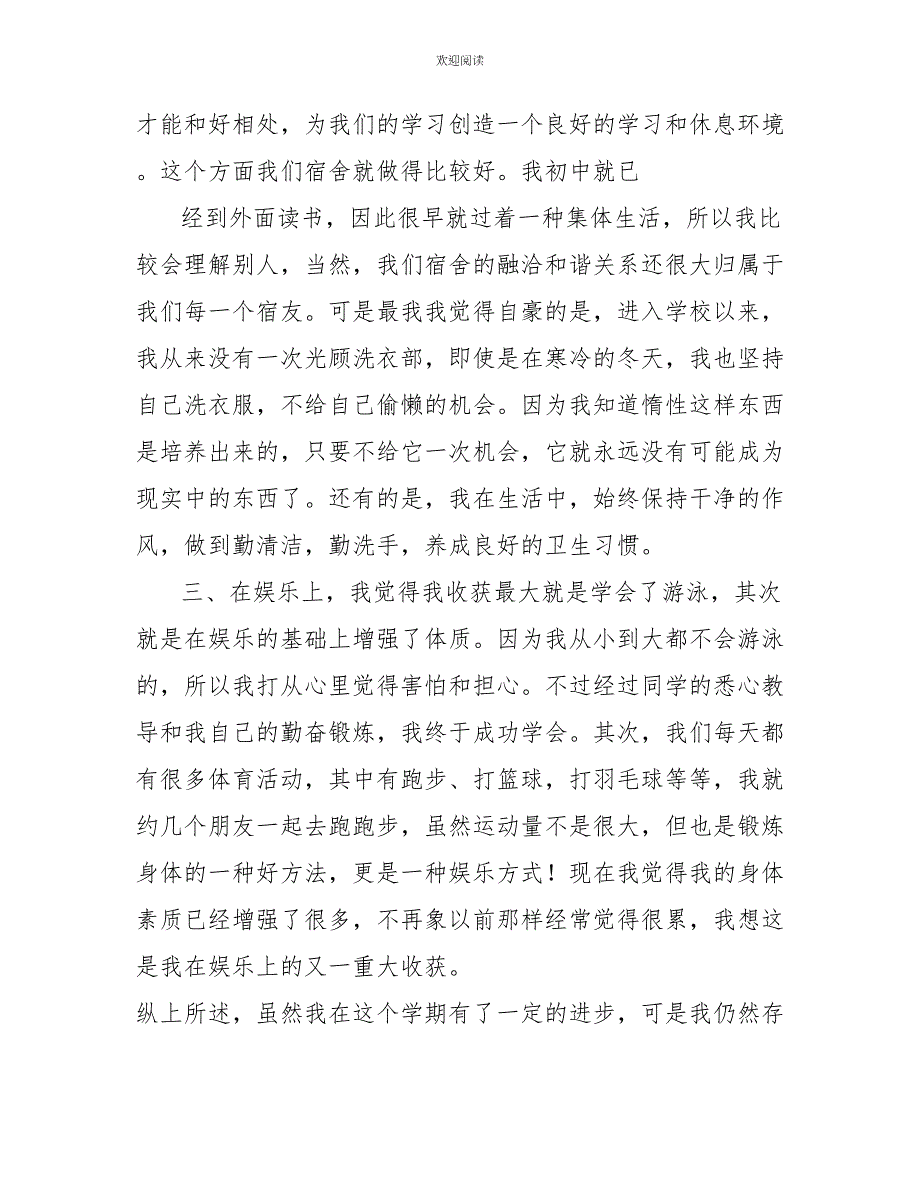 欢迎阅读
才能和好相处，为我们的学习创造一个良好的学习和休息环境
。这个方面我们宿舍就做得比较好。我初中就已
经到外面读书，因此很早就过着一种集体生活，所以我比
较会理解别人，当然，我们宿舍的融洽和谐关系还很大归属于
我们每一个宿友。可是最我我觉得自豪的是，进入学校以来，
我从来没有一次光顾洗衣部，即使是在寒冷的冬天，我也坚持
自己洗衣服，不给自己偷懒的机会。因为我知道惰性这样东西
是培养出来的，只要不给它一次机会，它就永远没有可能成为
现实中的东西了。还有的是，我在生活中，始终保持干净的作
风，做到勤清洁，勤洗手，养成良好的卫生习惯。
三、在娱乐上，我觉得我收获最大就是学会了游泳，其次
就是在娱乐的基础上增强了体质。因为我从小到大都不会游泳
的，所以我打从心里觉得害怕和担心。不过经过同学的悉心教
导和我自己的勤奋锻炼，我终于成功学会。其次，我们每天都
有很多体育活动，其中有跑步、打篮球，打羽毛球等等，我就
约几个朋友一起去跑跑步，虽然运动量不是很大，但也是锻炼
身体的一种好方法，更是一种娱乐方式！现在我觉得我的身体
素质已经增强了很多，不再象以前那样经常觉得很累，我想这
是我在娱乐上的又一重大收获。
纵上所述，虽然我在这个学期有了一定的进步，可是我仍然存